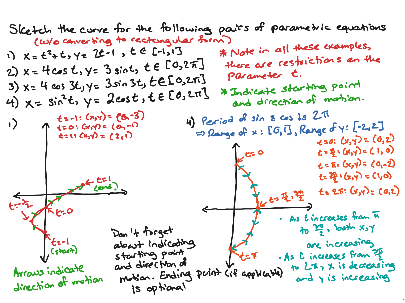 Sketch the curve for the following pairs of parametric equations
(w/o converting to rectangular form)
1) x = t²+t, y = 2t-1, t ∈ [-1,1]
2) x = 4cost, y = 3sint, t ∈ [0,2π]
3) x = 4cos3t, y = 3sin3t, t ∈ [0,2π]
4) x = sin²t, y = 2cost, t ∈ [0,2π]
* Note in all these examples,
there are restrictions on the
Parameter t.
* Indicate starting point
and direction of motion.
1)
t=-1: (x,y) = (0,-3)
t=0: (x,y) = (0,-1)
t=1: (x,y) = (2,1)
t=1
(end)
t=0
t=-1
(start)
Arrows indicate
direction of motion
Don't forget
about indicating
starting point
and direction of
motion. Ending point (if applicable)
is optional
4) Period of sin & cos is 2π
⇒ Range of x: [0,1], Range of y: [-2,2]
t=0: (x,y) = (0,2)
t=π/2: (x,y) = (1,0)
t=π: (x,y) = (0,-2)
t=3π/2: (x,y) = (1,0)
t=2π: (x,y) = (0,2)
t=0
t=π/2, 3π/2
t=π
• As t increases from π
to 3π/2, both x,y
are increasing
• As t increases from 3π/2
to 2π, x is decreasing
and y is increasing